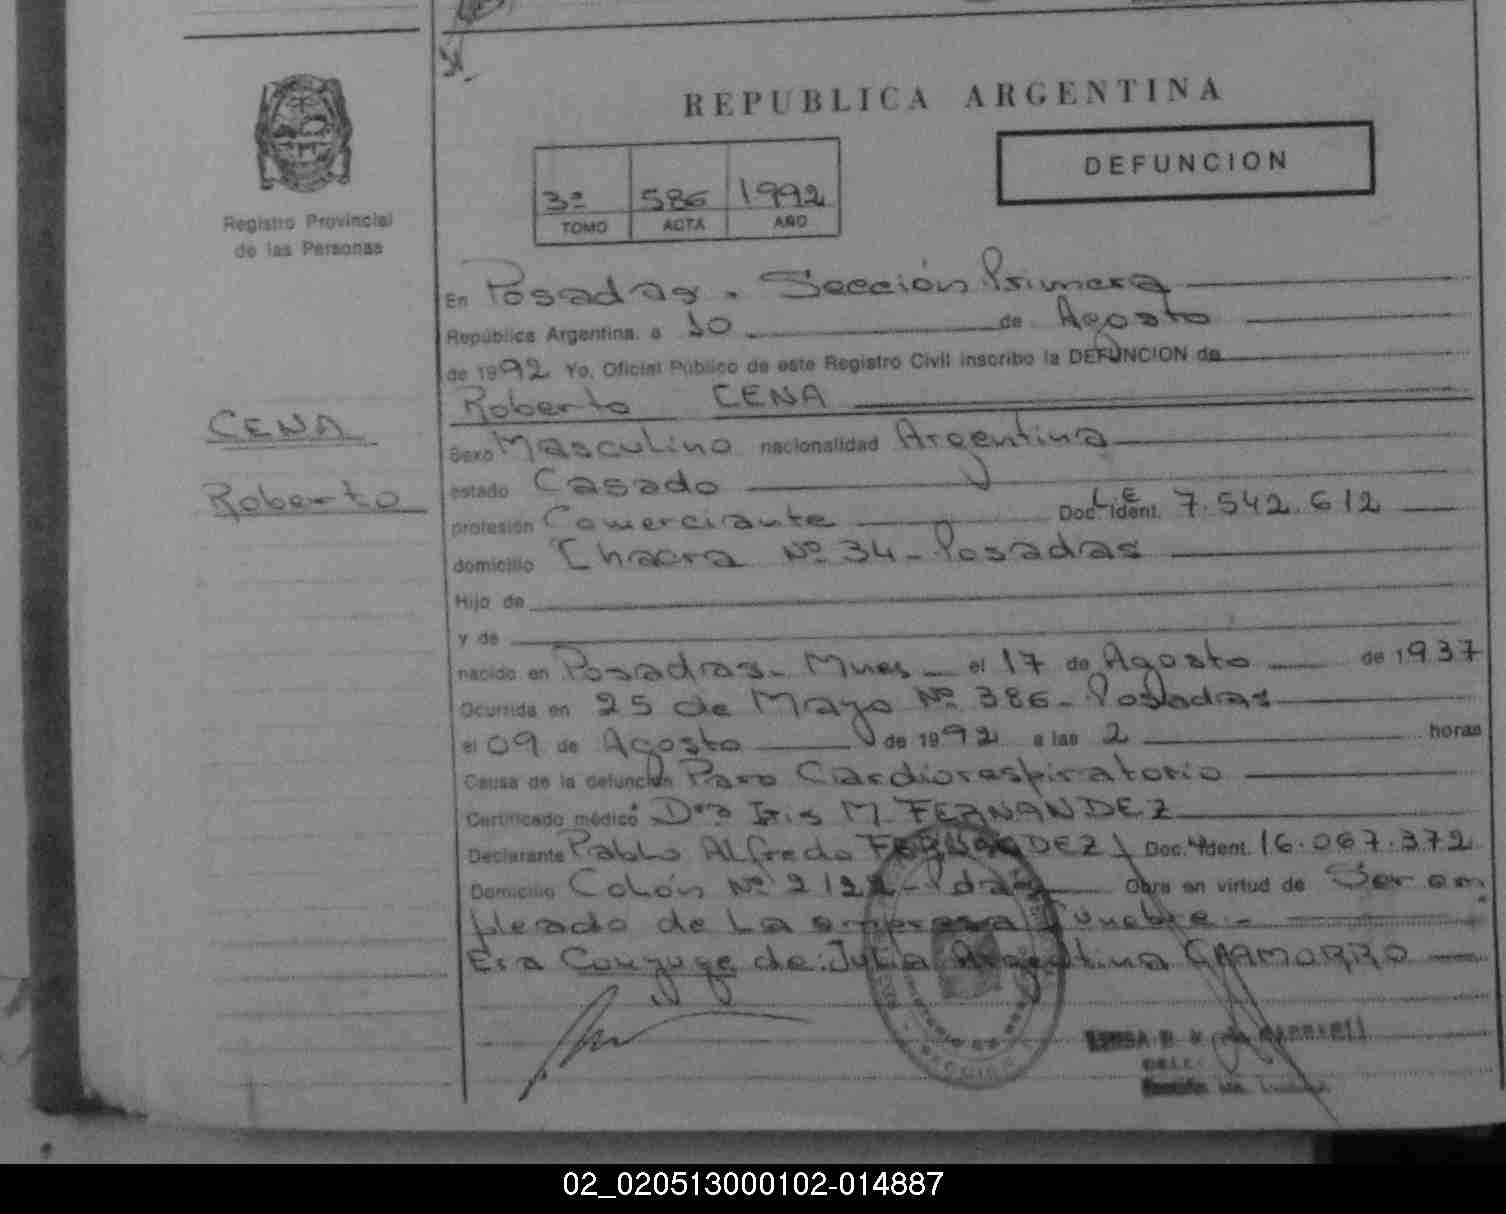 REPUBLICA ARGENTINA
DEFUNCION
3º 586 1992
TOMO ACTA AÑO
Registro Provincial
de las Personas
CENA
Roberto
En Posadas. Sección Primera
República Argentina, a 10 de Agosto
de 1992 Yo, Oficial Público de este Registro Civil inscribo la DEFUNCION de
Roberto CENA
Sexo Masculino nacionalidad Argentina
estado Casado
profesión Comerciante Doc. Ident. L.E 7.542.612
domicilio Chacra Nº 34 - Posadas
Hijo de
y de
nacido en Posadas - Mnes - el 17 de Agosto de 1937
Ocurrida en 25 de Mayo Nº 386 - Posadas
el 09 de Agosto de 1992 a las 2 horas
Causa de la defunción Paro Cardiorespiratorio
Certificado médico Dra Iris M. FERNANDEZ
Declarante Pablo Alfredo FERNANDEZ Doc. Ident. 16.067.372
Domicilio Colón Nº 2122 - Pdas Obra en virtud de Ser em
pleado de la empresa Funebre.-
Era Conyuge de: Julia Argentina CHAMORRO
02_020513000102-014887